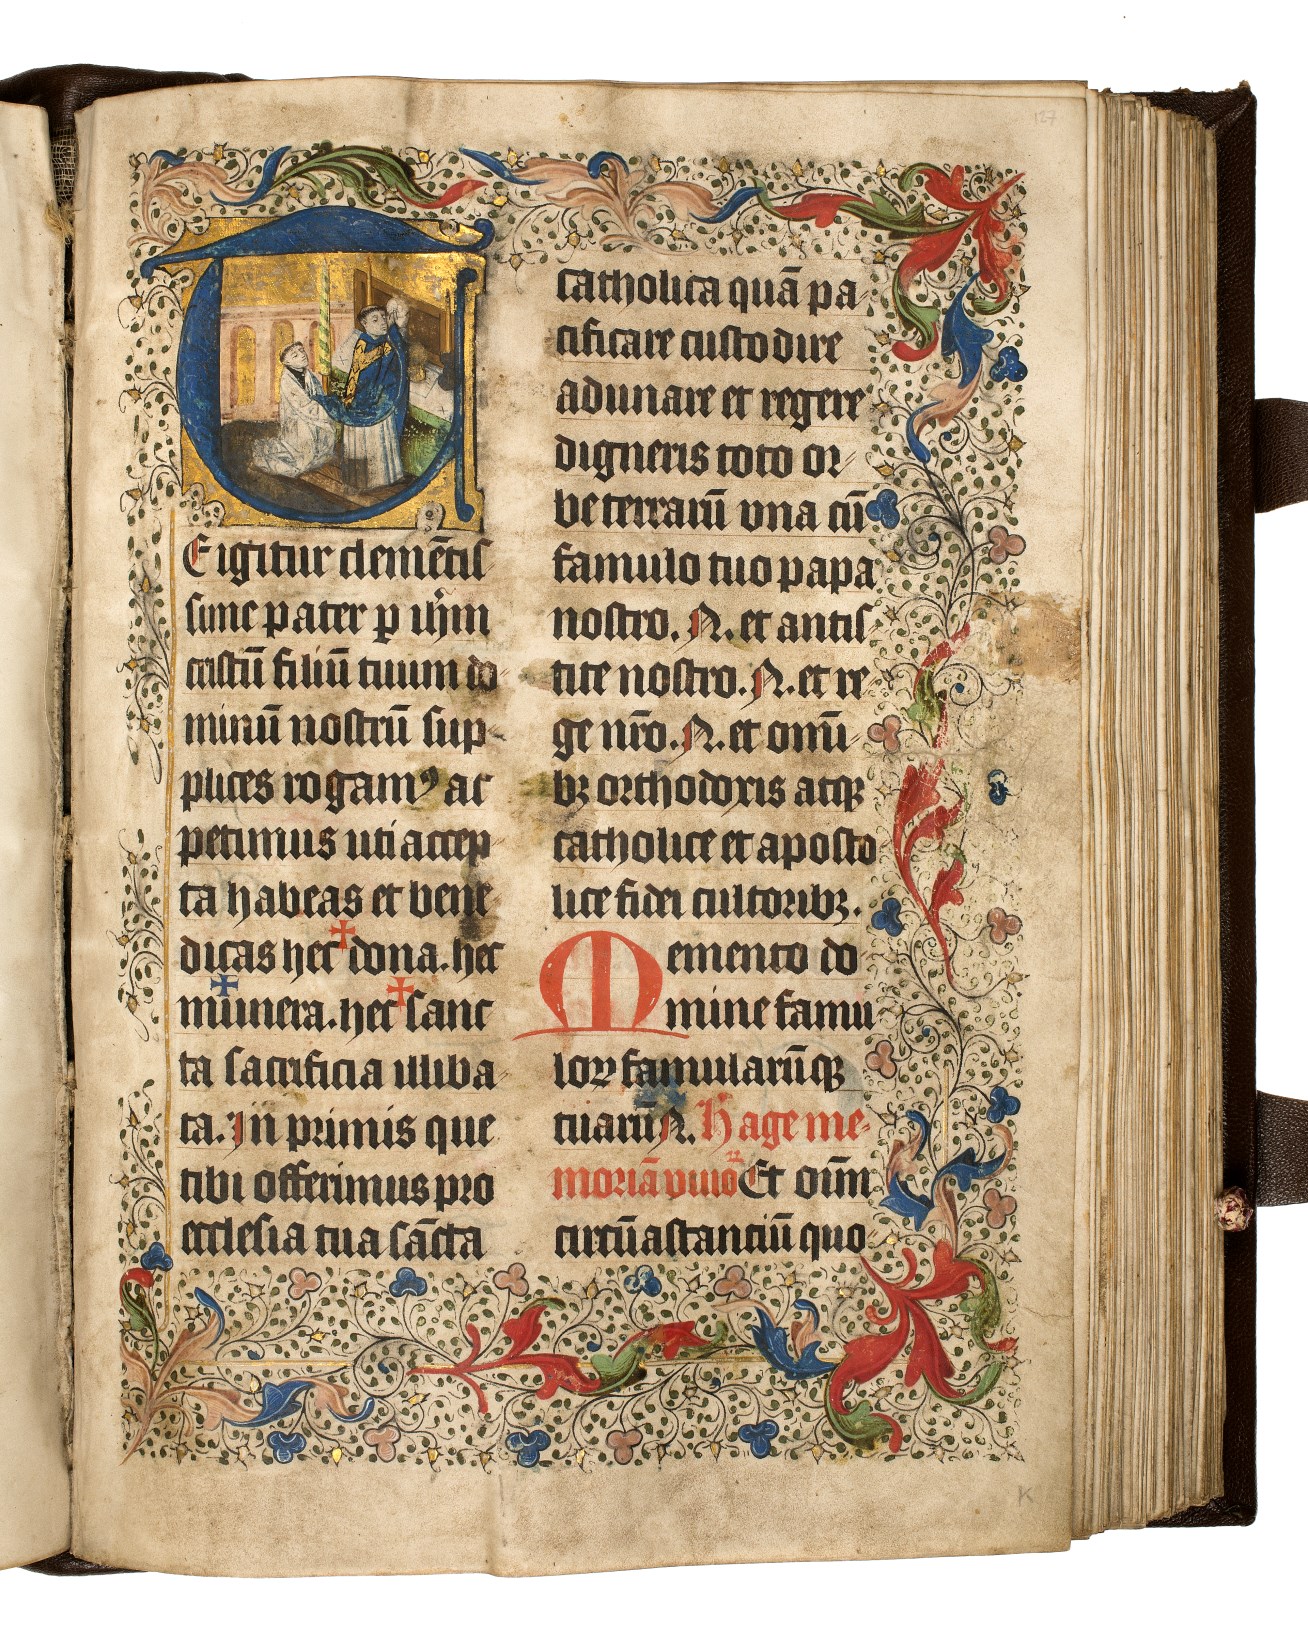 127
T
E igitur clemētis
sime pater ꝑ ihm̄
cristū filiū tuum do-
minū nostrū sup-
plices rogamꝰ ac
petimus uti accep-
ta habeas et bene-
dicas hec ✝ dona. hec
✝ munera. hec ✝ sanc
ta sacrificia illiba-
ta. In primis que
tibi offerimus pro
ecclesia tua sācta
catholica quā pa-
cificare custodire
adunare et regere
digneris toto or-
be terrarū vna cū
famulo tuo papa
nostro. N. et antis-
tite nostro. N. et re-
ge nr̄o. N. et omī-
bꝫ orthodoxis atqꝫ
catholice et aposto
lice fidei cultoribꝫ.
Memento do-
mine famu-
loꝝ famularūqꝫ
tuarū N. Hage me-
moriā viuoꝝ Et oīm
circūastanciū quo-
K